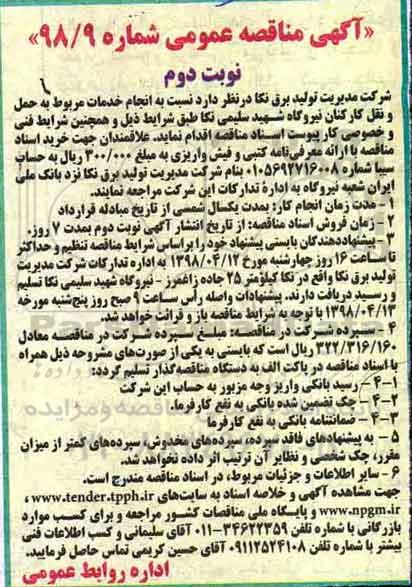 «آگهی مناقصه عمومی شماره ۹۸/۹»
نوبت دوم
شرکت مدیریت تولید برق نکا درنظر دارد نسبت به انجام خدمات مربوط به حمل
و نقل کارکنان نیروگاه شهید سلیمی نکا طبق شرایط ذیل و همچنین شرایط فنی
و خصوصی کار پیوست اسناد مناقصه اقدام نماید. علاقمندان جهت خرید اسناد
مناقصه با ارائه معرفی‌نامه کتبی و فیش واریزی به مبلغ ۳۰۰/۰۰۰ ریال به حساب
سیبا شماره ۰۱۰۵۶۹۲۷۱۶۰۰۸ بنام شرکت مدیریت تولید برق نکا نزد بانک ملی
ایران شعبه نیروگاه به اداره تدارکات این شرکت مراجعه نمایند.
۱ - مدت زمان انجام کار: بمدت یکسال شمسی از تاریخ مبادله قرارداد
۲ - زمان فروش اسناد مناقصه: از تاریخ انتشار آگهی نوبت دوم بمدت ۷ روز.
۳ - پیشنهاددهندگان بایستی پیشنهاد خود را براساس شرایط مناقصه تنظیم و حداکثر
تا ساعت ۱۶ روز چهارشنبه مورخ ۱۳۹۸/۰۴/۱۲ به اداره تدارکات شرکت مدیریت
تولید برق نکا واقع در نکا کیلومتر ۲۵ جاده زاغمرز - نیروگاه شهید سلیمی نکا تسلیم
و رسید دریافت دارند. پیشنهادات واصله رأس ساعت ۹ صبح روز پنج‌شنبه مورخه
۱۳۹۸/۰۴/۱۳ با توجه به شرایط مناقصه باز و قرائت خواهد شد.
۴ - سپرده شرکت در مناقصه: مبلغ سپرده شرکت در مناقصه معادل
۳۲۲/۳۱۶/۱۶۰ ریال است که بایستی به یکی از صورت‌های مشروحه ذیل همراه
با اسناد مناقصه در پاکت الف به دستگاه مناقصه‌گذار تسلیم گردد:
۱-۴ - رسید بانکی واریز وجه مزبور به حساب این شرکت
۲-۴ - چک تضمین شده بانکی به نفع کارفرما.
۳-۴ - ضمانتنامه بانکی به نفع کارفرما
۵ - به پیشنهادهای فاقد سپرده، سپرده‌های مخدوش، سپرده‌های کمتر از میزان
مقرر، چک شخصی و نظایر آن ترتیب اثر داده نخواهد شد.
۶ - سایر اطلاعات و جزئیات مربوط، در اسناد مناقصه مندرج است.
جهت مشاهده آگهی و خلاصه اسناد به سایت‌های www.tender.tpph.ir ،
www.npgm.ir و پایگاه ملی مناقصات کشور مراجعه و برای کسب موارد
بازرگانی با شماره تلفن ۳۴۶۲۲۳۵۹-۰۱۱ آقای سلیمانی و کسب اطلاعات فنی
بیشتر با شماره تلفن ۰۹۱۱۲۵۲۴۱۰۸ آقای حسین کریمی تماس حاصل فرمایید.
اداره روابط عمومی